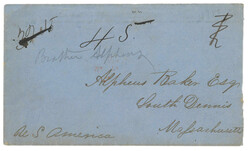 45
Brother Alpheus
Alpheus Baker Esq
South Dennis
Massachusetts
U S America